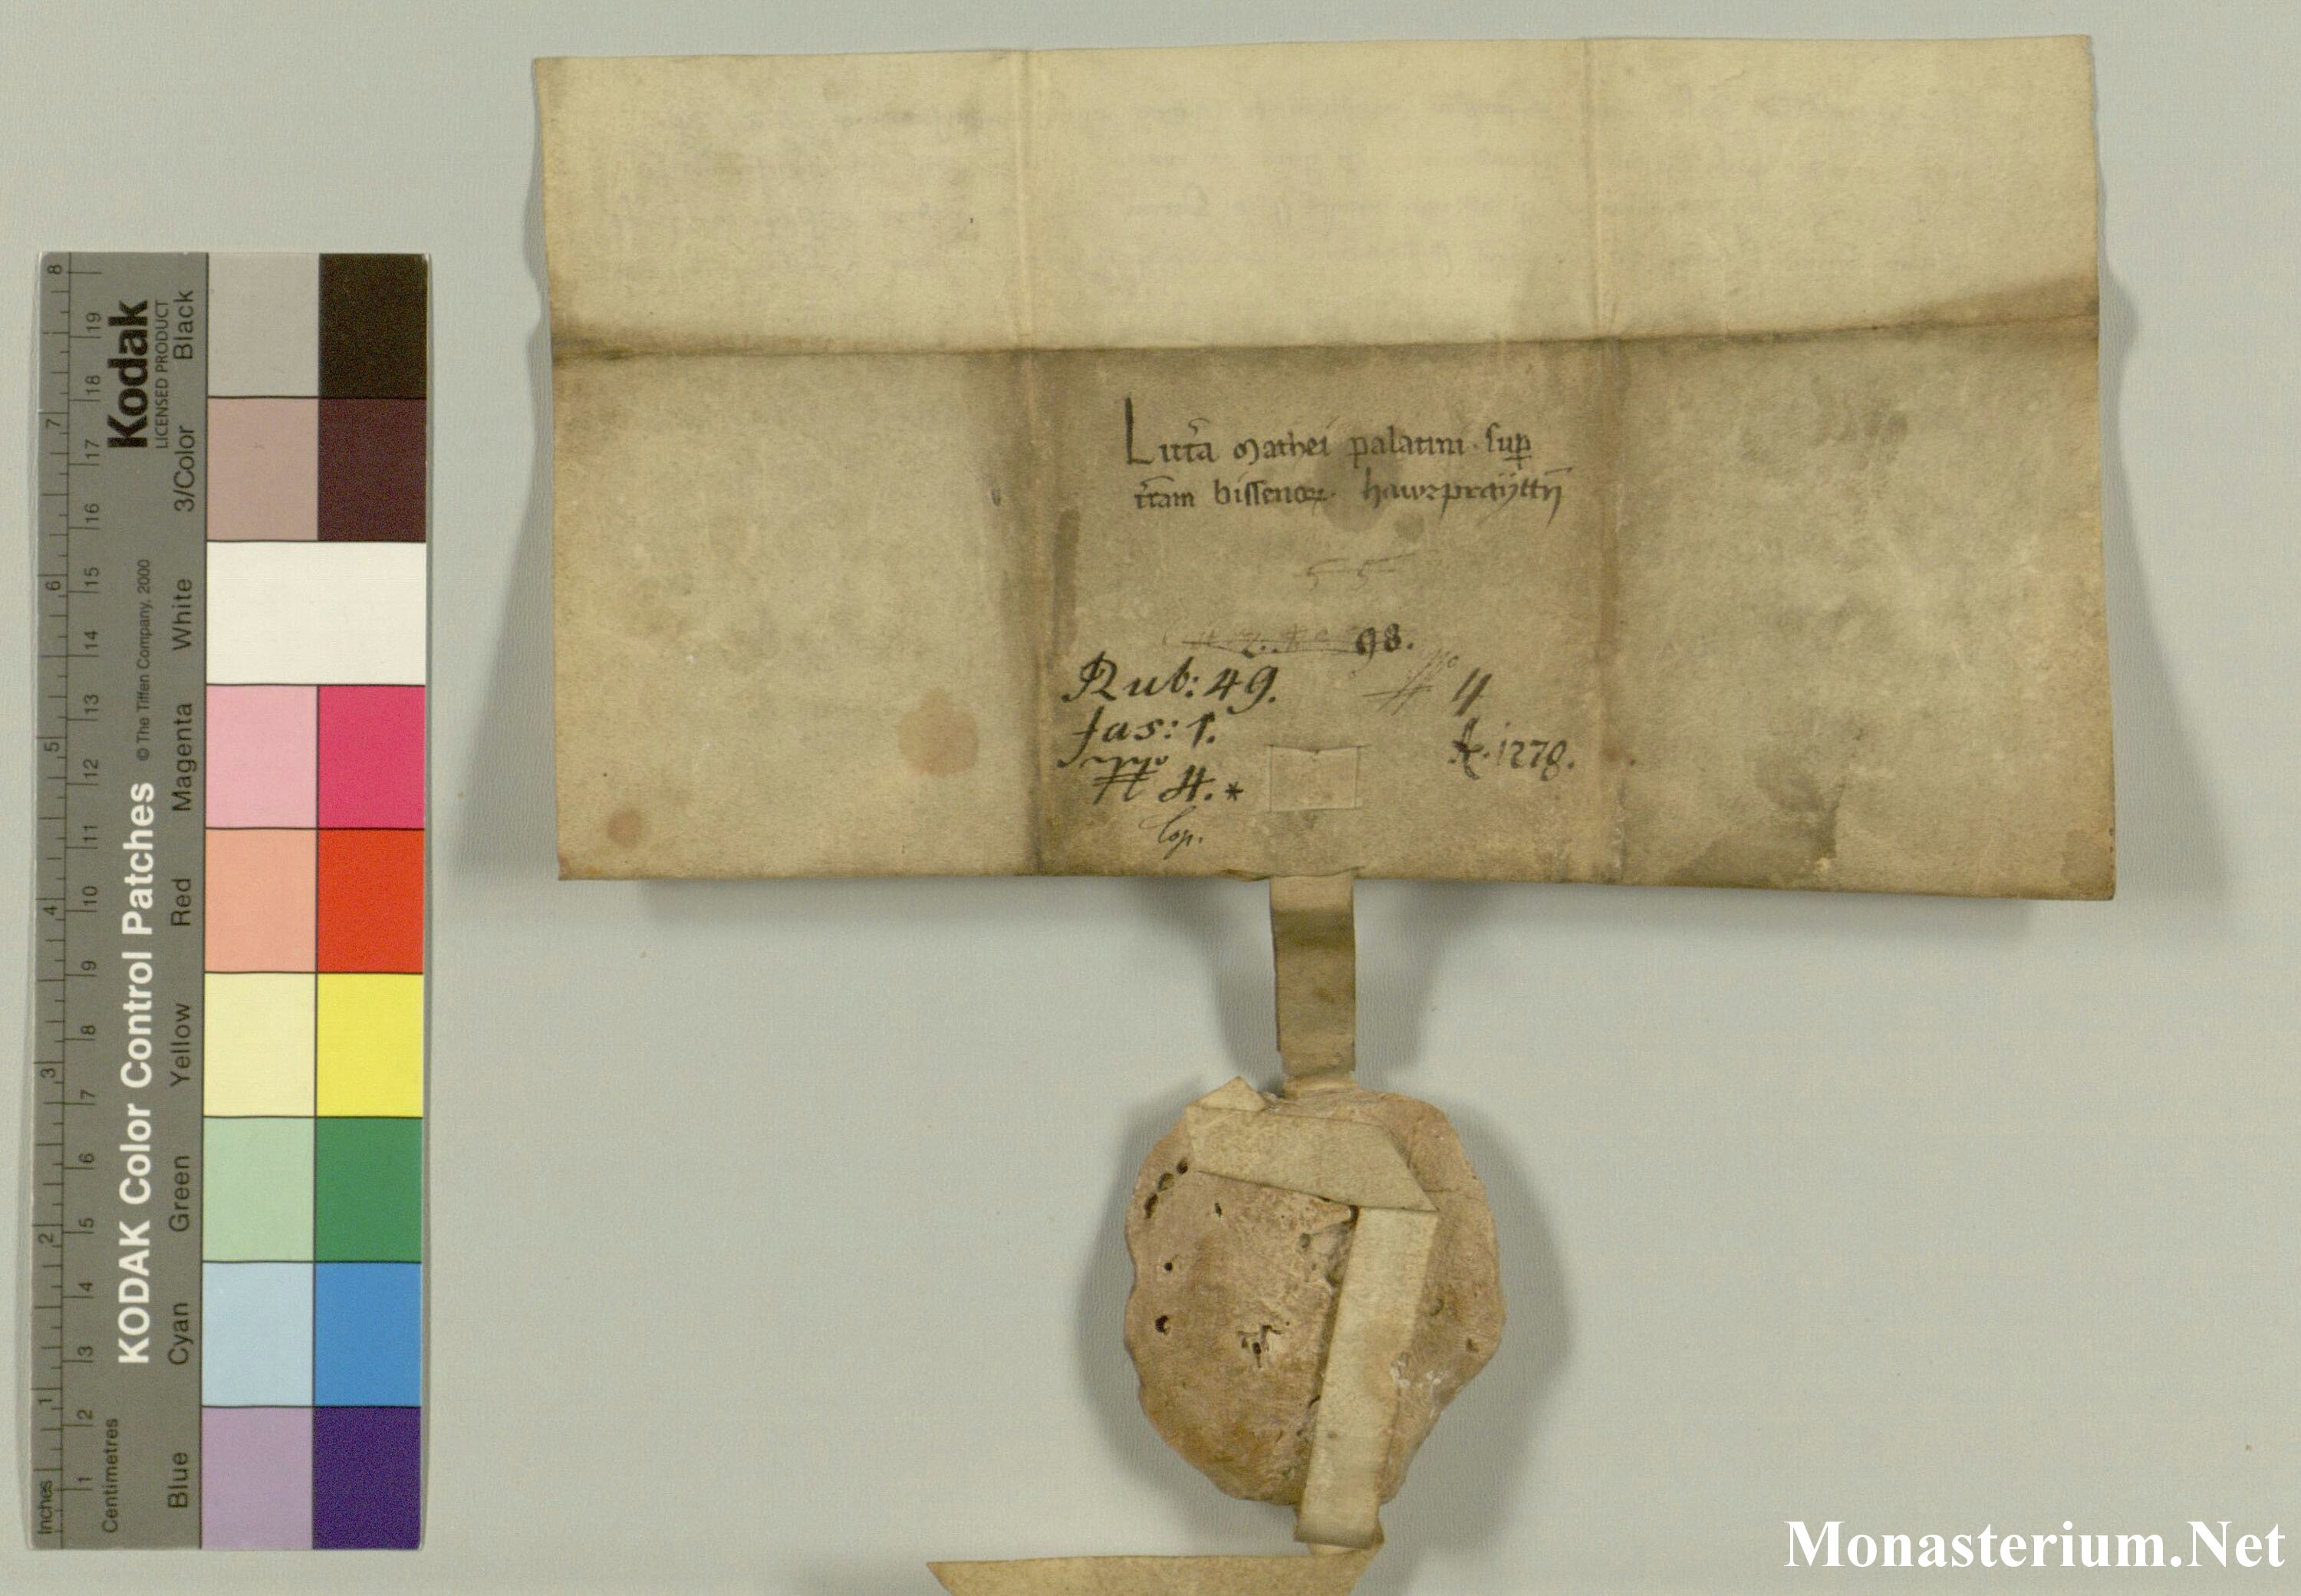 Litt̃a Mathei palatini sup̱
tr̃am bissenoꝝ. hawzpraÿttñ
55
98.
Rub: 49.
fas: 1.
Nro 4. *
Cop.
No 4
A. 1278.
Kodak
LICENSED PRODUCT
KODAK Color Control Patches
© The Tiffen Company, 2000
Blue Cyan Green Yellow Red Magenta White 3/Color Black
Inches 1 2 3 4 5 6 7 8
Centimetres 1 2 3 4 5 6 7 8 9 10 11 12 13 14 15 16 17 18 19
Monasterium.Net